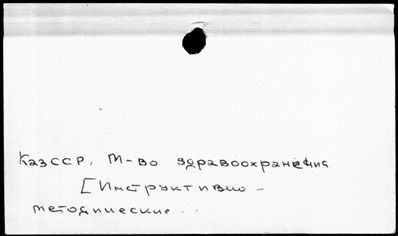 КазССР. М-во здравоохранения
[Инструктивно -
методические . .